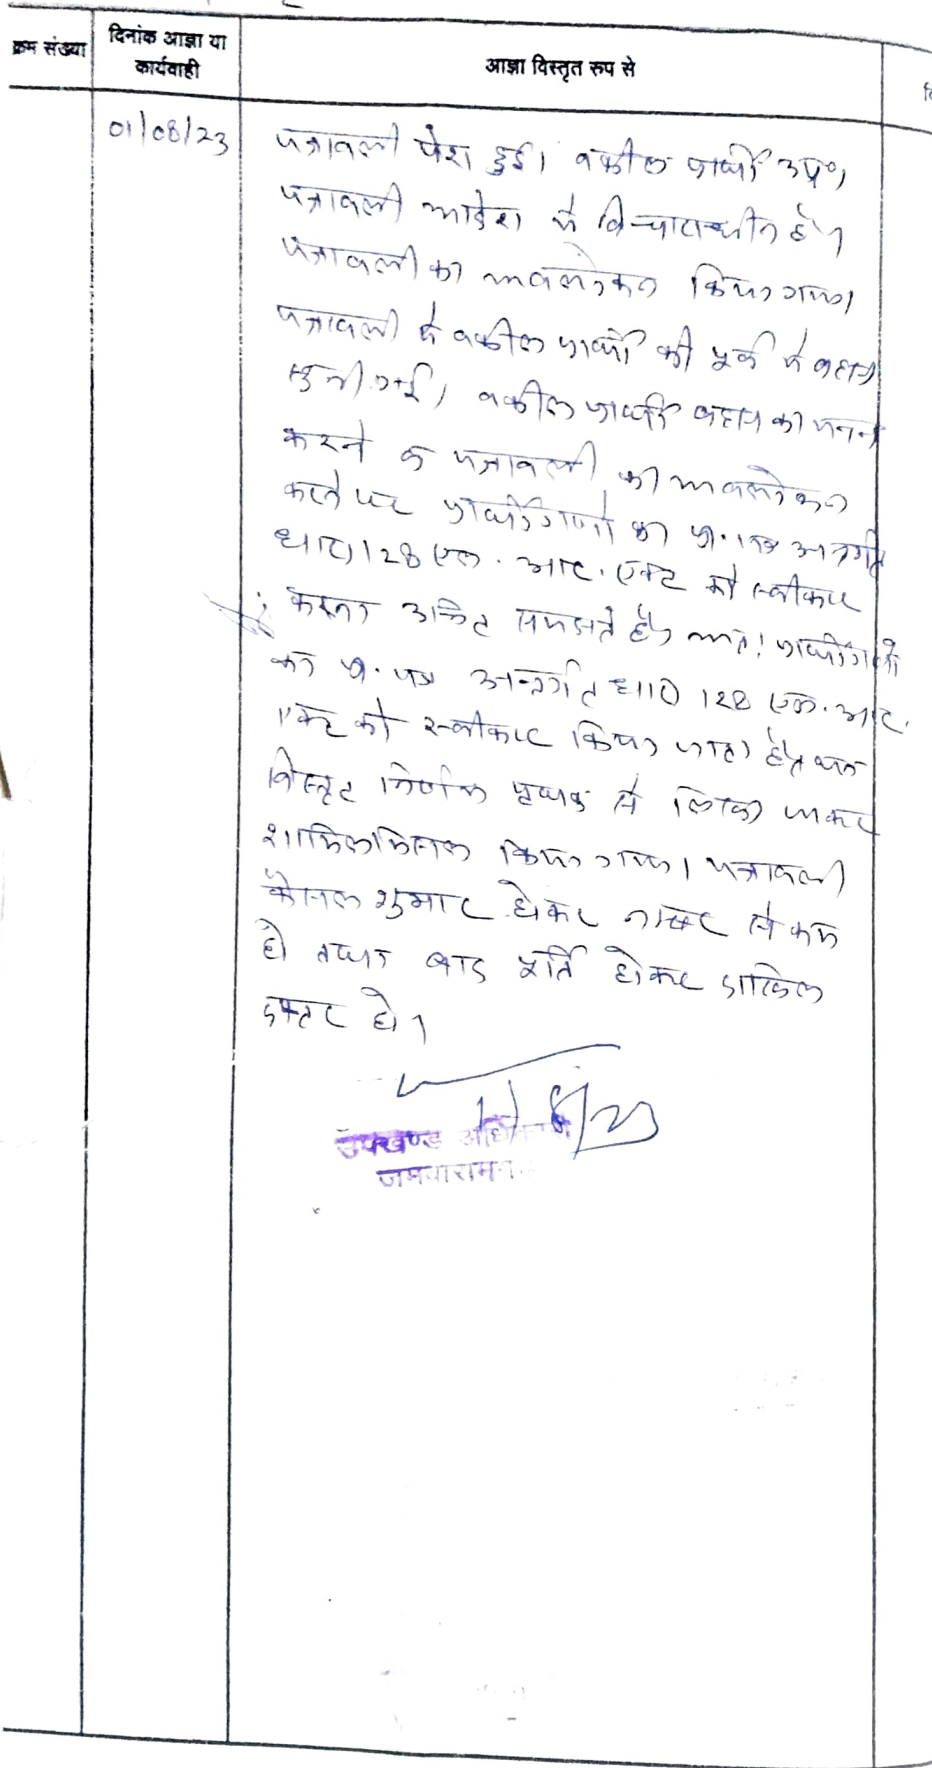 क्रम संख्या
दिनांक आज्ञा या
कार्यवाही
आज्ञा विस्तृत रुप से
01/08/23
पत्रावली पेश हुई। वकील प्रार्थी उप०।
पत्रावली आदेश में विचाराधीन है।
पत्रावली का अवलोकन किया गया।
पत्रावली में वकील प्रार्थी की पूर्व में बहस
सुनी गई। वकील प्रार्थी बहस का मनन
करने व पत्रावली का अवलोकन
करने पर प्रार्थीगणों का प्रा. पत्र अन्तर्गत
धारा 128 एल. आर. एक्ट को स्वीकार
करना उचित समझते है। अतः प्रार्थीगणों
का प्रा. पत्र अन्तर्गत धारा 128 एल. आर.
एक्ट को स्वीकार किया जाता है।
विस्तृत निर्णय पृथक से लिखा जाकर
शामिलमिसल किया गया। पत्रावली
फैसल शुमार होकर नम्बर से कम
हो तथा बाद पूर्ति होकर दाखिल
दफ्तर हो।
1/8/23
उपखण्ड अधिकारी
जमवारामग